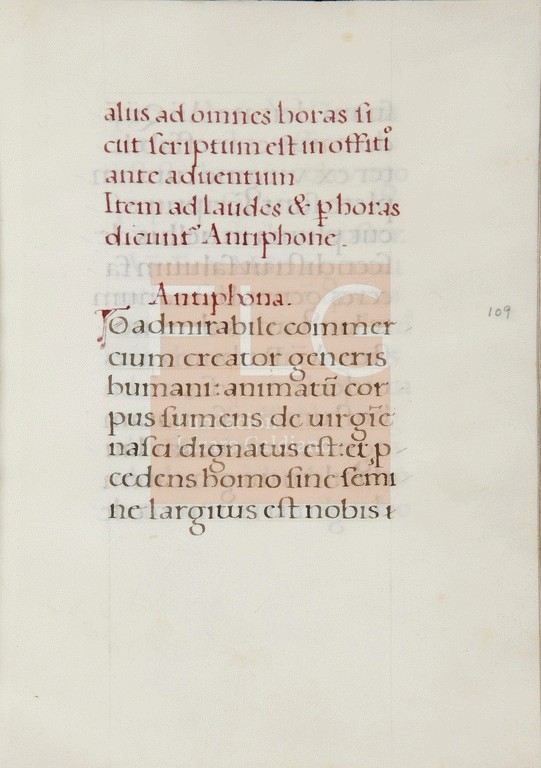 aliis ad omnes horas si
cut scriptum est in offitiº
ante aduentum
Item ad laudes & ꝑ horas
dicunt᷑ Antiphone.
Antiphona.
O admirabile commer
cium creator generis
humani: animatū cor
pus sumens de uirgīe
nasci dignatus est: et p
cedens homo sine semi
ne largitus est nobis
109
FLC